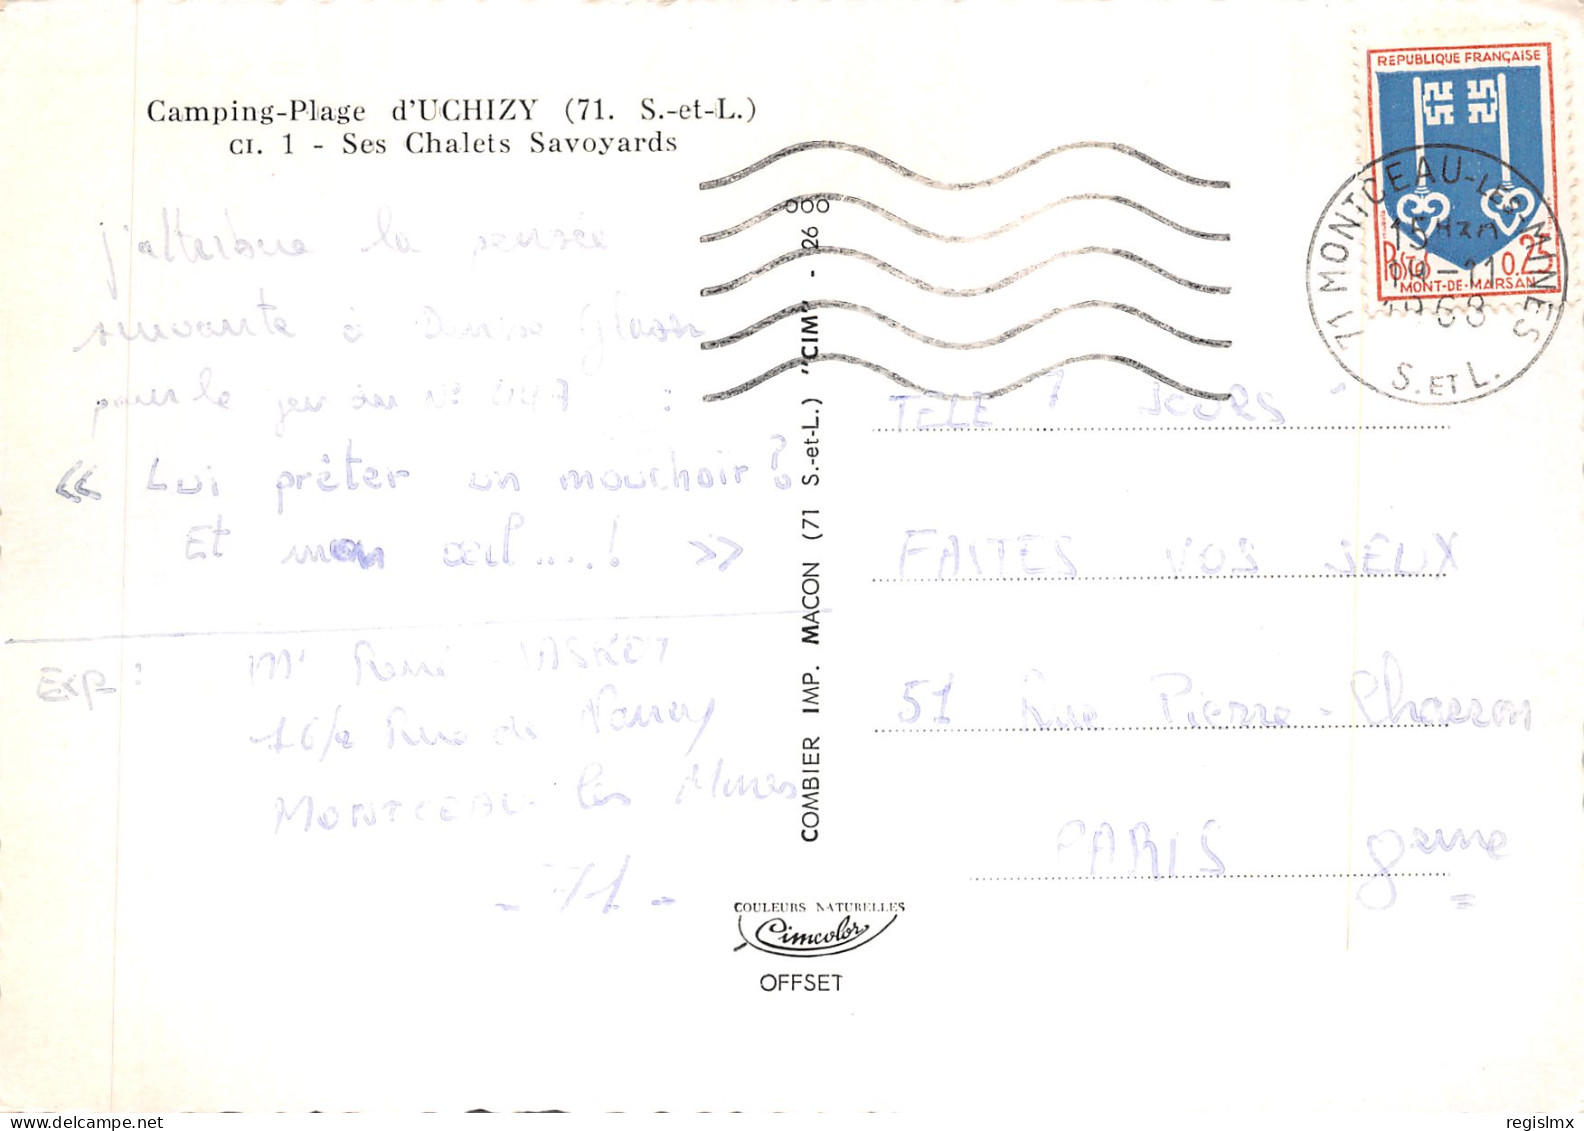 Camping-Plage d'UCHIZY (71. S.-et-L.)
CI. 1 - Ses Chalets Savoyards
j'attribue la pensée
suivante à Denise Glaser
pour le jeu du N° 447 :
« Lui prêter un mouchoir ?
Et mon œil....! »
Exp :
Mr René
16/2 Rue de Nancy
MONTCEAU les Mines
- 71 -
COMBIER IMP. MACON (71 S.-et-L.) "CIM" - 26 000
COULEURS NATURELLES
Cimcolor
OFFSET
REPUBLIQUE FRANÇAISE
POSTES 0.25
MONT-DE-MARSAN
71 MONTCEAU-LES-MINES
15H
-11
1968
S. ET L.
TELE 7 JOURS
FAITES VOS JEUX
51 Rue Pierre-Charron
PARIS 8eme
regislmx